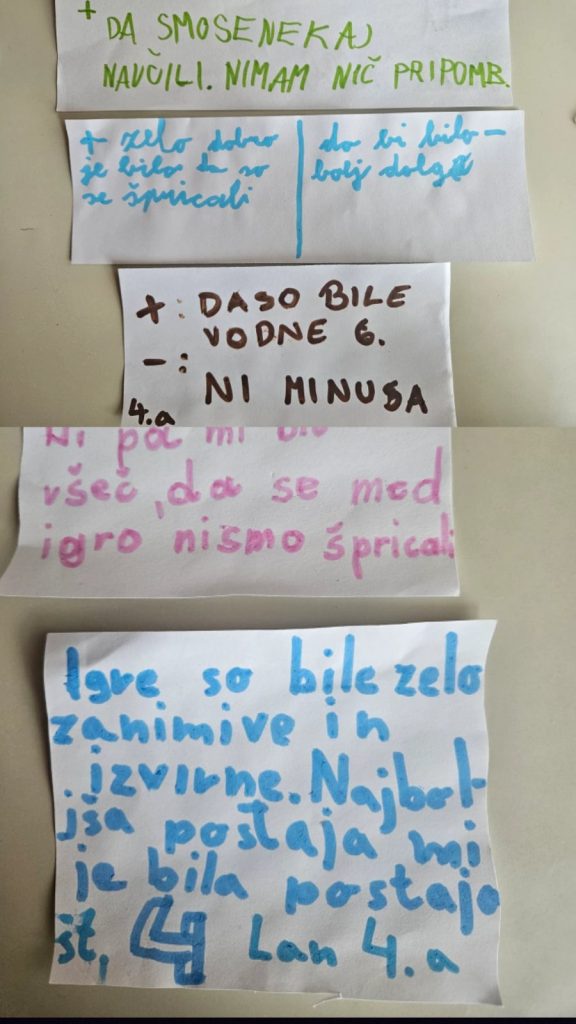 +
DA SMOSENEKAJ
NAVČILI. NIMAM NIČ PRIPOMB.
+ zelo dobro
je bilo da so
se špricali
da bi bilo –
bolj dolgo
+: DASO BILE
VODNE 6.
-:
NI MINUSA
4.a
Ni pa mi bilo
všeč, da se med
igro nismo špricali
Igre so bile zelo
zanimive in
izvirne. Najbol-
jša postaja mi
je bila postaja
št, 4 Lan 4.a